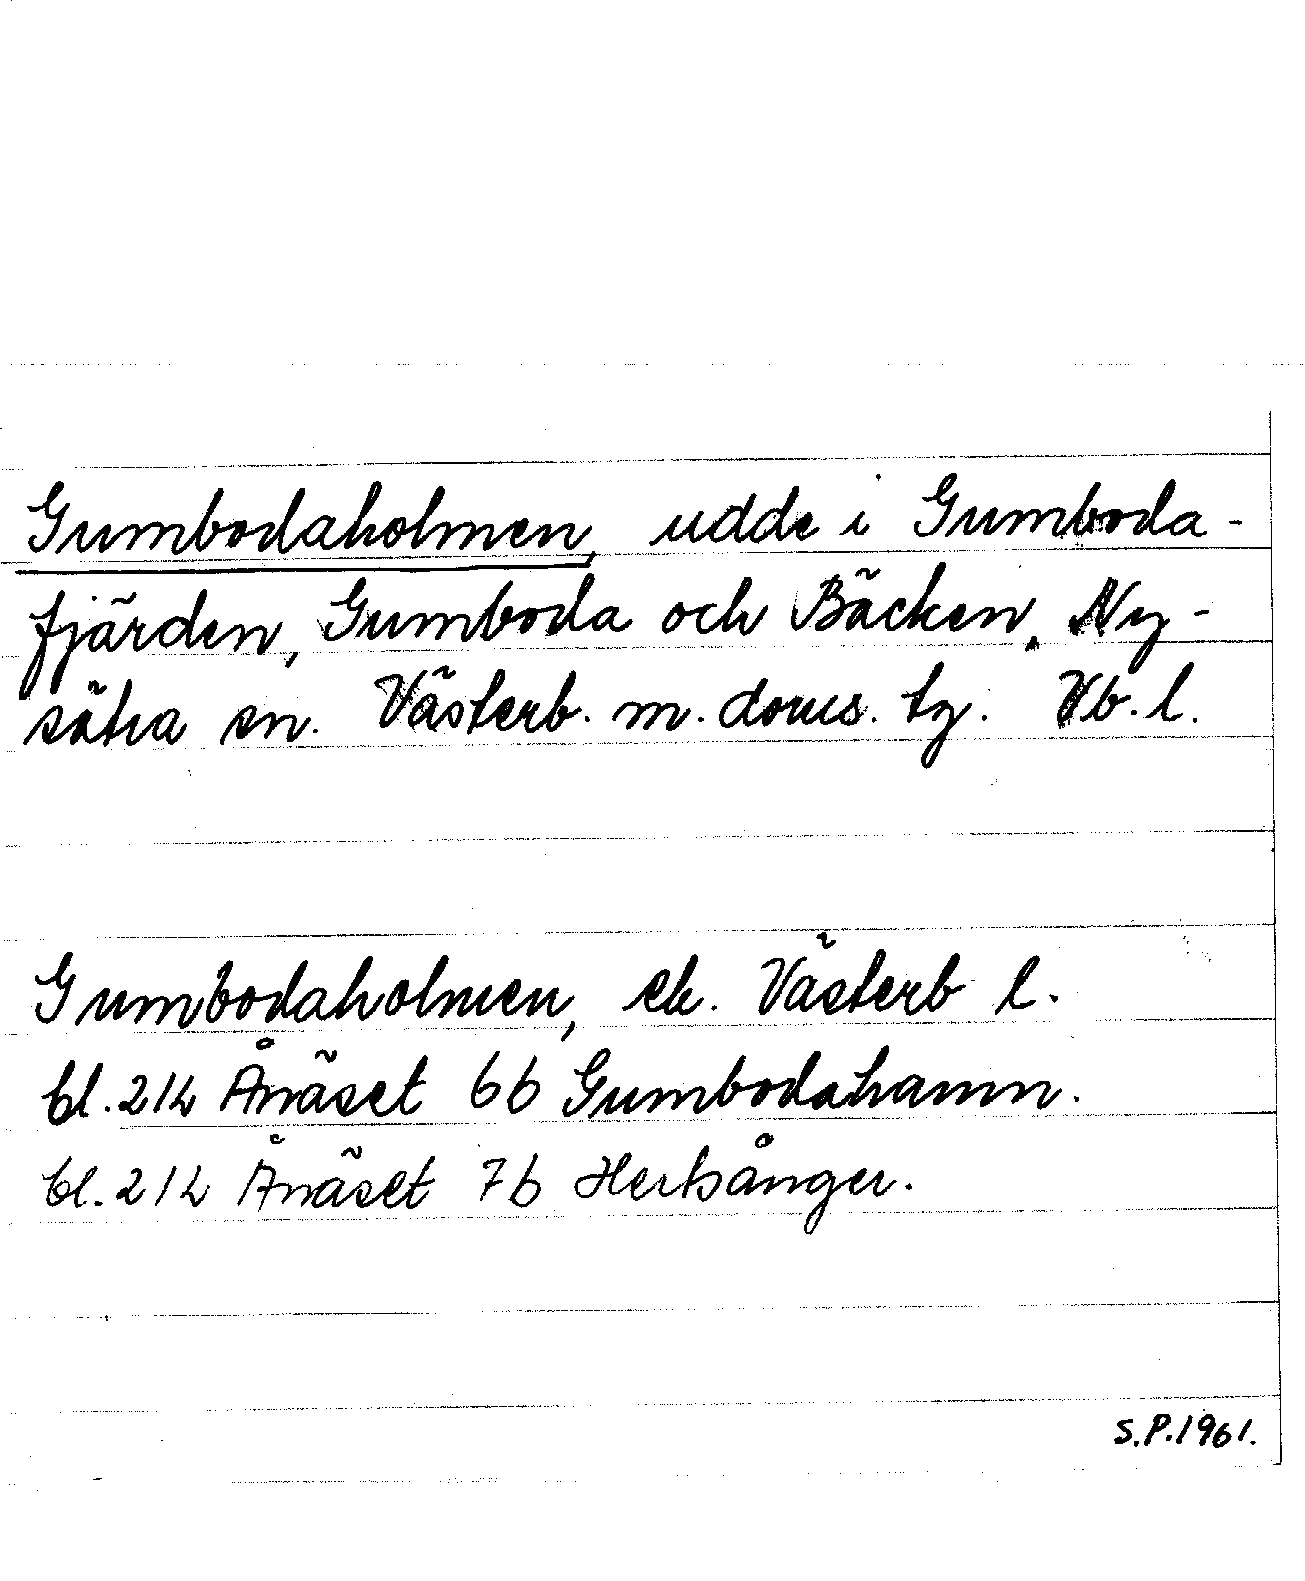 Gumbodaholmen, udde i Gumboda-
fjärden, Gumboda och Bäcken, Ny-
sätra sn. Västerb. m. doms. tg. Vb. l.
Gumbodaholmen, ek. Västerb l.
bl. 21L Ånäset 6b Gumbodahamn.
bl. 21L Ånäset 7b Hertsånger.
S.P. 1961.